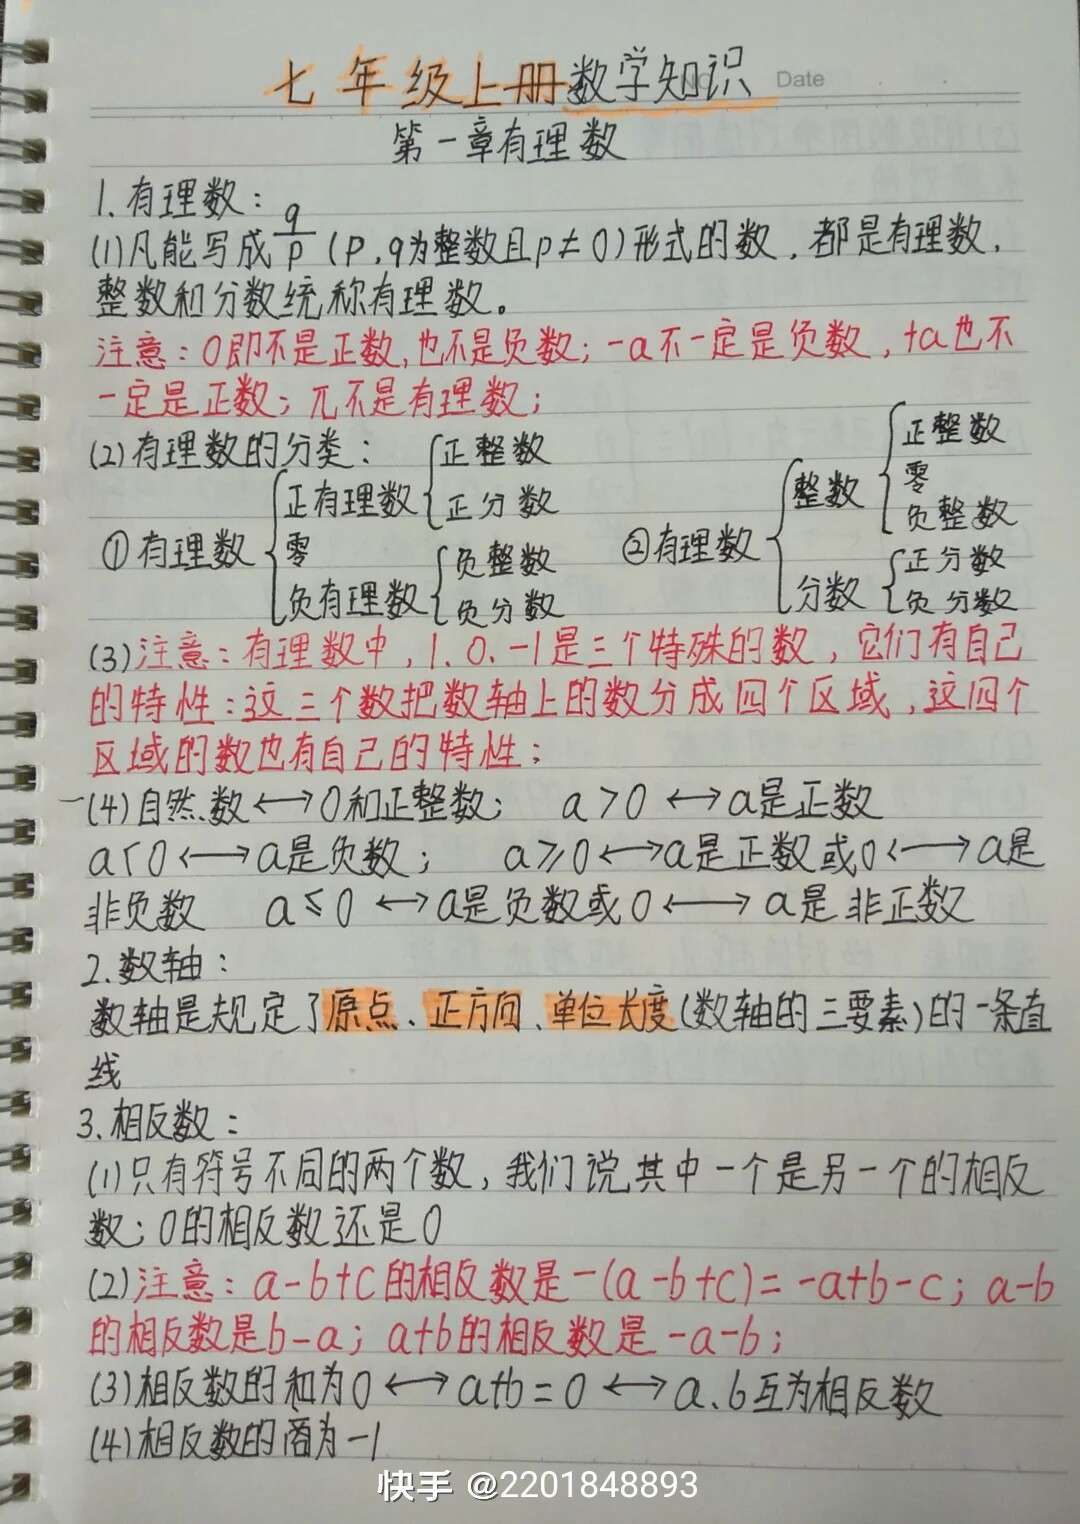 七年级上册数学知识
Date
第一章有理数
1.有理数：
(1)凡能写成q/p(p,q为整数且p≠0)形式的数，都是有理数，
整数和分数统称有理数。
注意：0即不是正数,也不是负数；-a不一定是负数，+a也不
一定是正数；π不是有理数；
(2)有理数的分类：
①有理数{正有理数{正整数 正分数 零 负有理数{负整数 负分数
②有理数{整数{正整数 零 负整数 分数{正分数 负分数
(3)注意：有理数中，1、0、-1是三个特殊的数，它们有自己
的特性；这三个数把数轴上的数分成四个区域，这四个
区域的数也有自己的特性；
(4)自然数⟷0和正整数； a>0⟷a是正数
a<0⟷a是负数； a≥0⟷a是正数或0⟷a是
非负数 a≤0⟷a是负数或0⟷a是非正数
2.数轴：
数轴是规定了原点、正方向、单位长度(数轴的三要素)的一条直
线
3.相反数：
(1)只有符号不同的两个数，我们说其中一个是另一个的相反
数；0的相反数还是0
(2)注意：a-b+c的相反数是-(a-b+c)=-a+b-c；a-b
的相反数是b-a；a+b的相反数是-a-b；
(3)相反数的和为0⟷a+b=0⟷a、b互为相反数
(4)相反数的商为-1
快手 @2201848893